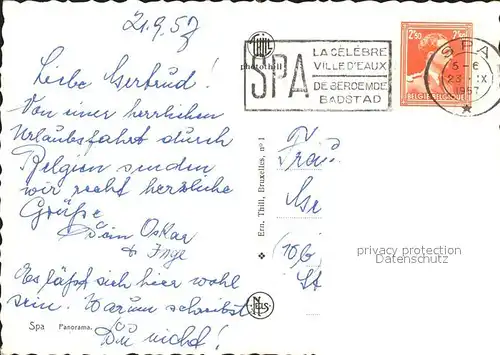 21.9.57
Liebe Gertrud!
Von einer herrlichen
Urlaubsfahrt durch
Belgien senden
wir recht herzliche
Grüße
Dein Oskar
& Inge
Es läßt sich hier wohl
sein. Warum schreibst
Du nicht!
Spa Panorama.
THILL
photothill
SPA
LA CÉLÈBRE
VILLE D'EAUX
DE BEROEMDE
BADSTAD
2F50 2F50
BELGIE BELGIQUE
SPA
5-6
23 IX
1957
Ern. Thill, Bruxelles, nº 1
NELS
Frau
Ger
(16b)
St
privacy protection
Datenschutz